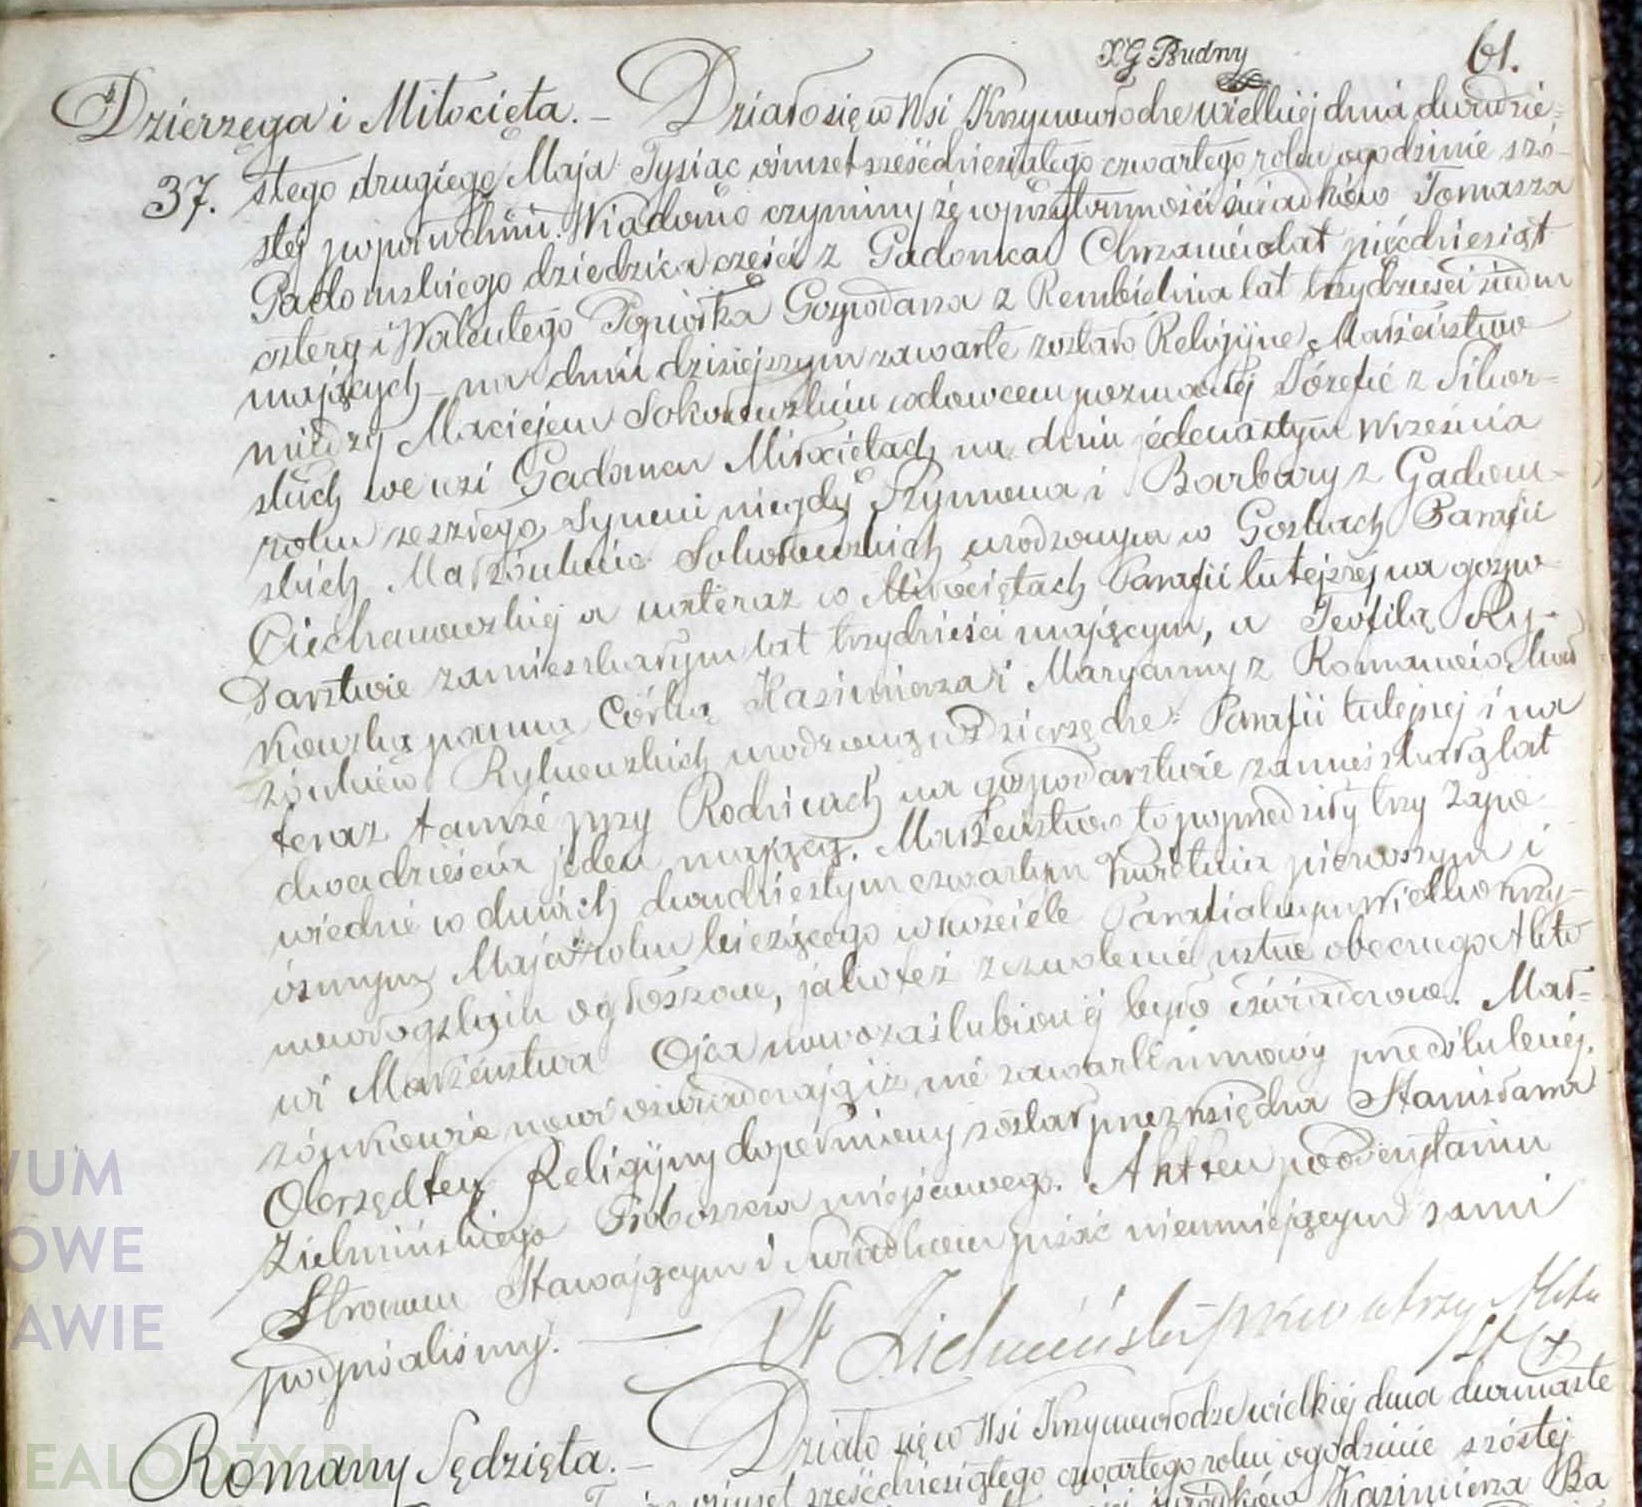 XG Budny
61.
Dzierzęga i Miłocięta. — Działo się w Wsi Krzynowłodze wielkiej dnia dwudzie-
37. stego drugiego Maja Tysiąc ośmset sześćdziesiątego czwartego roku o godzinie szó-
stej po południu. Wiadomo czynimy że w przytomności świadków Tomasza
Gadomskiego dziedzica części z Gadomca Chrzanów lat pięćdziesiąt
cztery i Walentego Popiołka Gospodarza z Rembielina lat trzydzieści siedm
mających — na dniu dzisiejszym zawarte zostało Religijne Małżeństwo
między Maciejem Sokołowskim wdowcem po zmarłej Józefie z Sikor-
skich we wsi Gadomcu Miłociętach na dniu jedenastym Września
roku zeszłego, Synem niegdy Szymona i Barbary z Gadom-
skich Małżonków Sokołowskich urodzonym w Goskach Parafii
Ciechanowskiej a na teraz w Miłociętach Parafii tutejszej na gospo-
darstwie zamieszkałym lat trzydzieści mającym, a Teofilą Ry-
kowską panną Córką Kazimierza i Maryanny z Romanów Mał
żonków Rykowskich urodzoną w Dzierzędze Parafii tutejszej i na
teraz tamże przy Rodzicach na gospodarstwie zamieszkałą lat
dwadzieścia jeden mającą. Małżeństwo to poprzedziły trzy Zapo-
wiedzie w dniach dwudziestym czwartym Kwietnia pierwszym i
ósmym Maja roku bieżącego w kościele Parafialnym Wielkokrzy-
nowłogskim ogłoszone, jako też zezwolenie ustne obecnego Akto-
wi Małżeństwa Ojca nowozaślubionej było oświadczone. Mał-
żonkowie nowi oświadczają iż nie zawarli umowy przedślubnej.
Obrzęd ten Religijny dopełniony został przez księdza Stanisława
Zielmińskiego Proboszcza miejscowego. Akt ten po odczytaniu
Stronom Stawającym i Świadkom pisać nieumiejącym sami
podpisaliśmy. —
X St Zielmiński
Romany Sędzięta. — Działo się w Wsi Krzynowłodze wielkiej dnia dwunaste
ośmset sześćdziesiątego czwartego roku o godzinie szóstej
świadków Kazimierza Ba
WUM
OWE
AWIE
EALODZY.PL